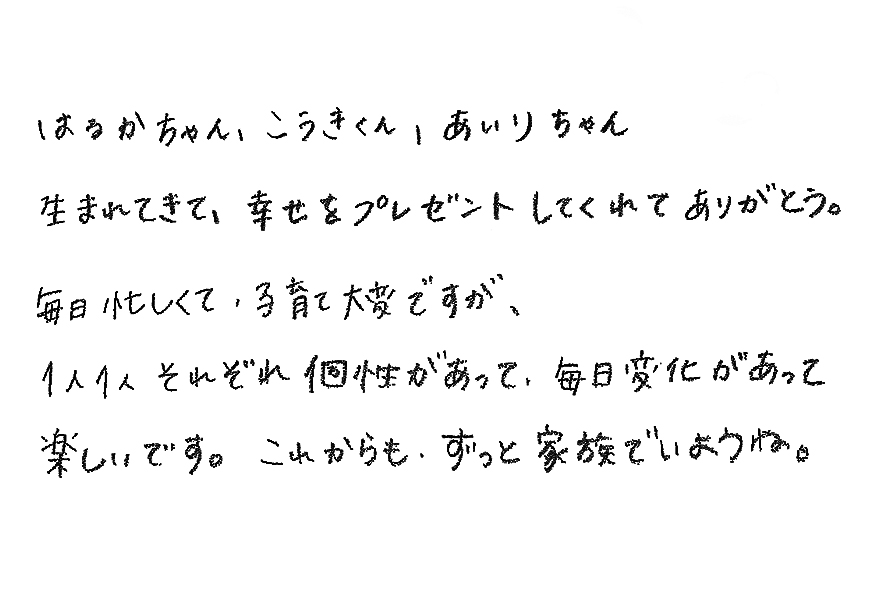 はるかちゃん、こうきくん、あいりちゃん
生まれてきて、幸せをプレゼントしてくれてありがとう。
毎日忙しくて、子育て大変ですが、
1人1人それぞれ個性があって、毎日変化があって
楽しいです。これからも、ずっと家族でいようね。